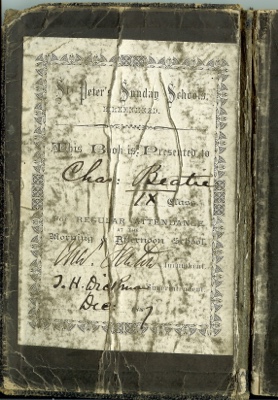 St. Peter's Sunday Schools,
This Book is Presented to
Chas: Beatie
IX Class,
For REGULAR ATTENDANCE
AT THE
Morning & Afternoon School.
Incumbent.
J. H. Dickman
Dec: